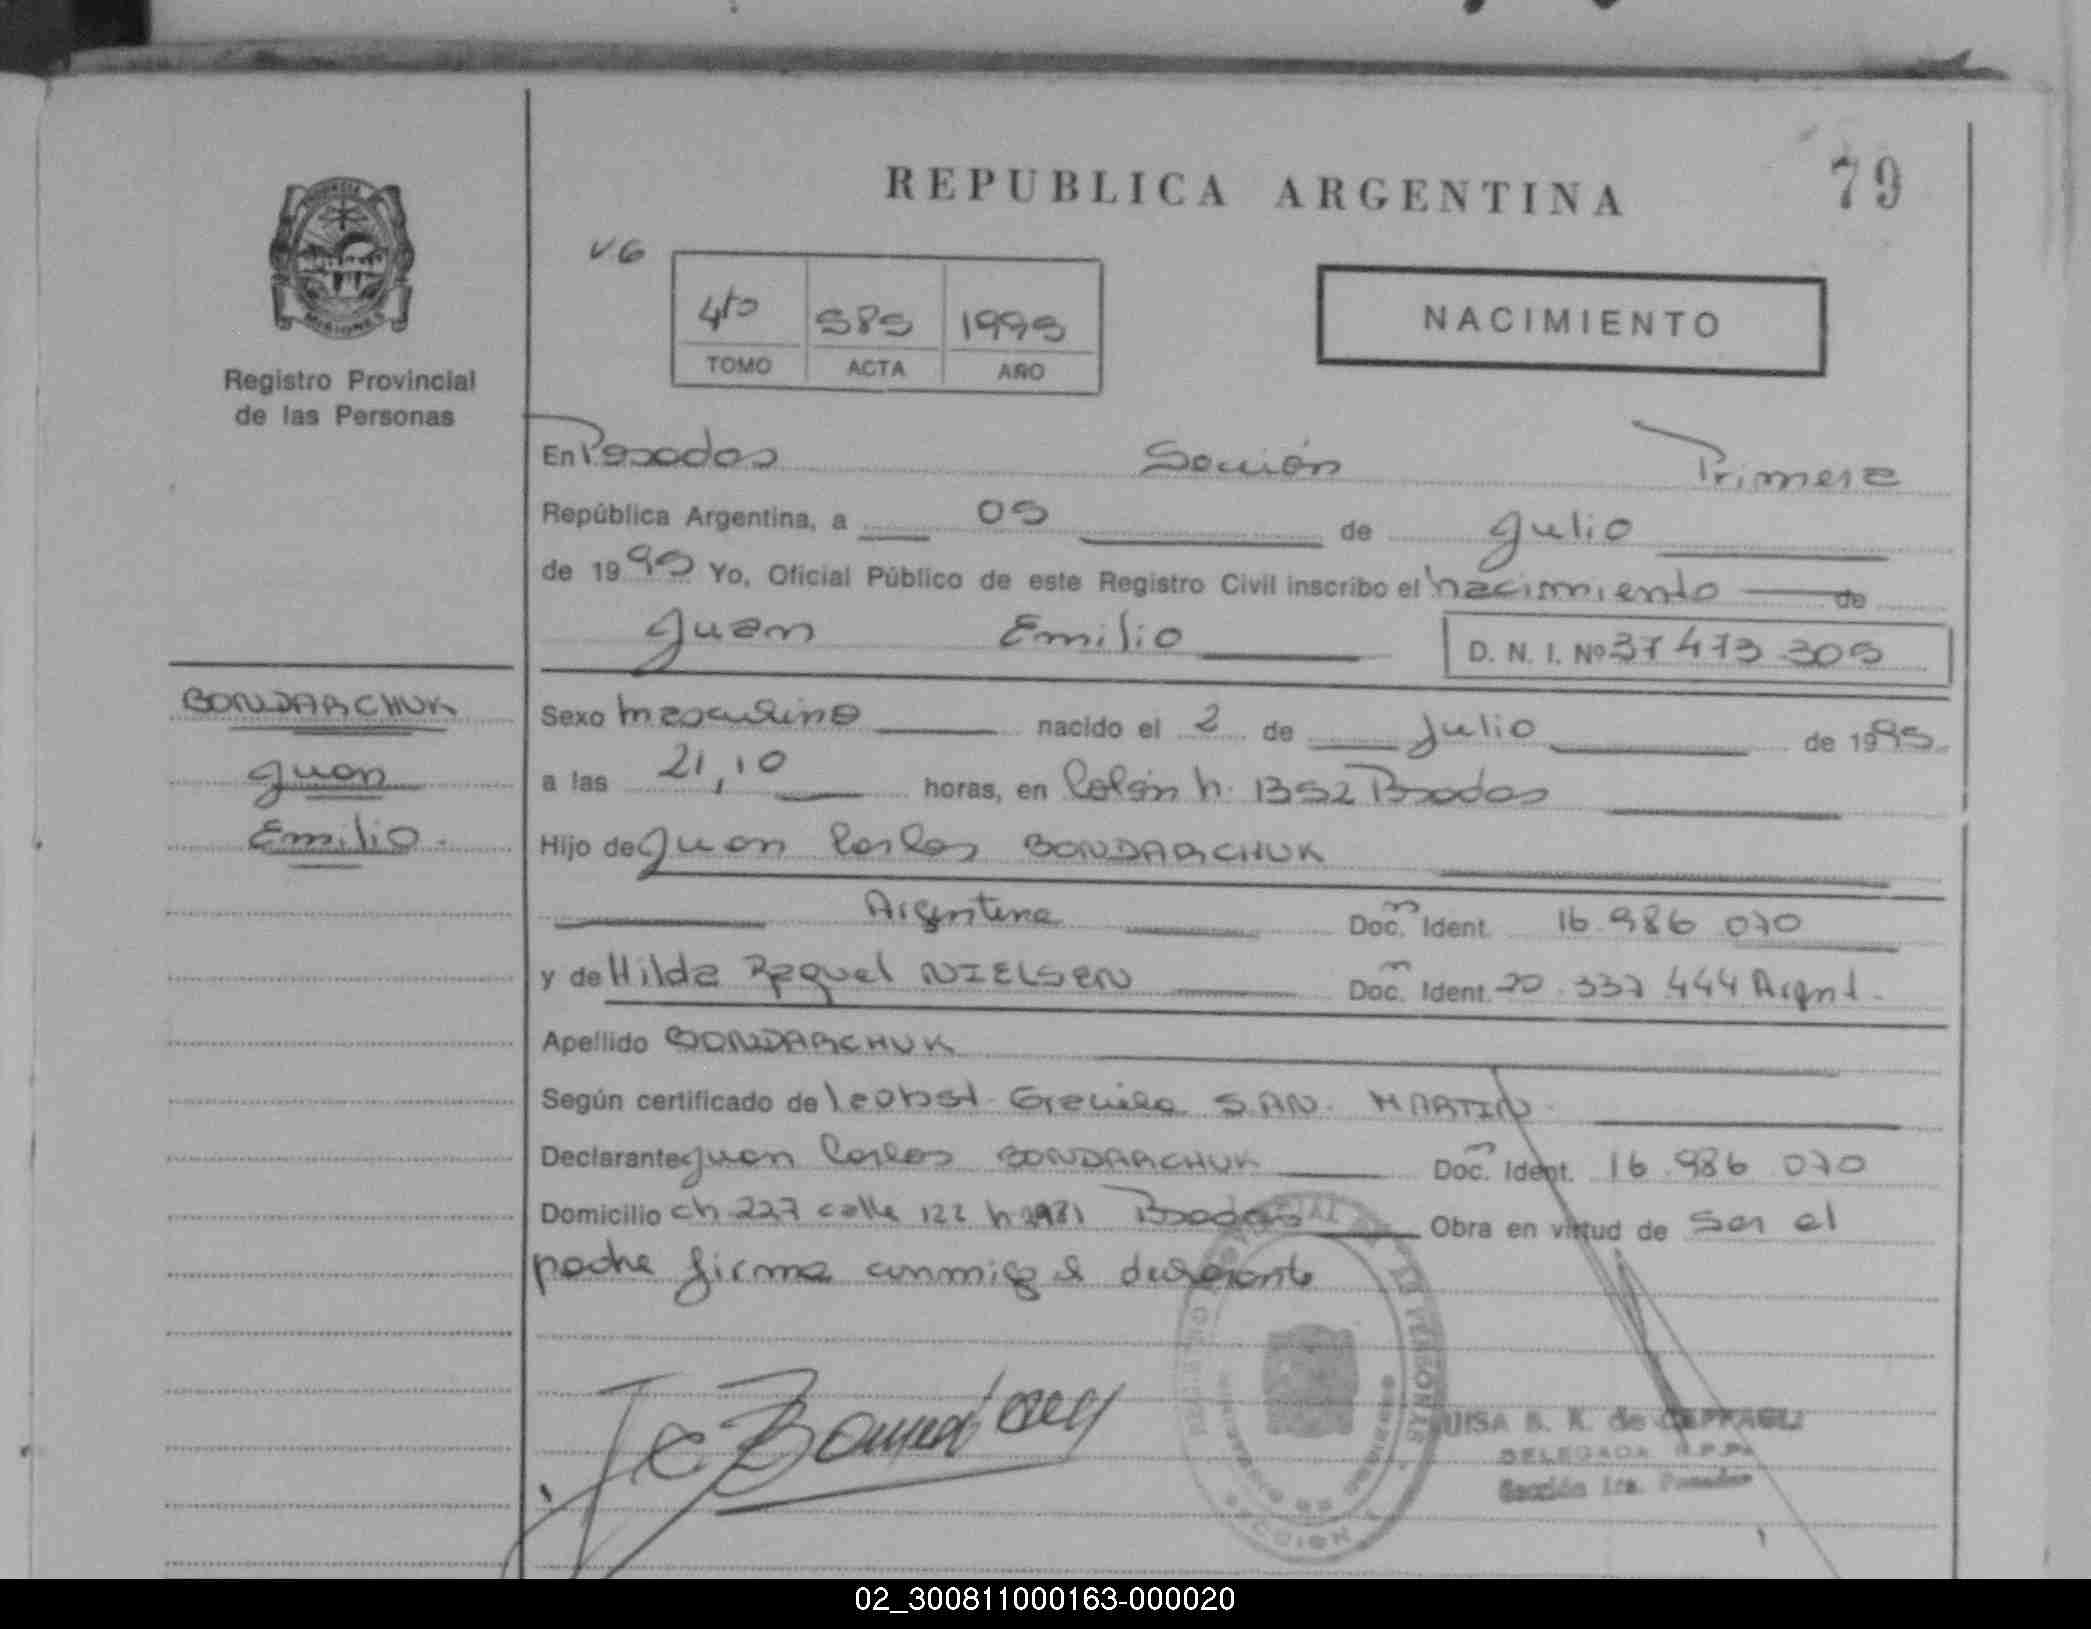 REPUBLICA ARGENTINA
79
V.G
4to 585 1995
TOMO ACTA AÑO
NACIMIENTO
MISIONES
Registro Provincial
de las Personas
En Posadas Sección Primera
República Argentina, a 05 de Julio
de 1995 Yo, Oficial Público de este Registro Civil inscribo el nacimiento de
Juan Emilio D. N. I. Nº 37 473 305
BONDARCHUK
Juan
Emilio.
Sexo masculino nacido el 2 de Julio de 1995
a las 21,10 horas, en Colón h. 1352 Posadas
Hijo de Juan Carlos BONDARCHUK
Argentina Doc. Ident. 16.986 070
y de Hilda Raquel NIELSEN Doc. Ident. 20.337 444 Argnt.
Apellido BONDARCHUK
Según certificado de Graciela SAN MARTIN
Declarante Juan Carlos BONDARCHUK Doc. Ident. 16.986 070
Domicilio ch 227 calle 122 h 2981 Posadas Obra en virtud de ser el
padre firma conmigo el declarante
LUISA B. K. de
DELEGADA R.P.P.
Sección 1ra. Posadas
SECCION 1
02_300811000163-000020